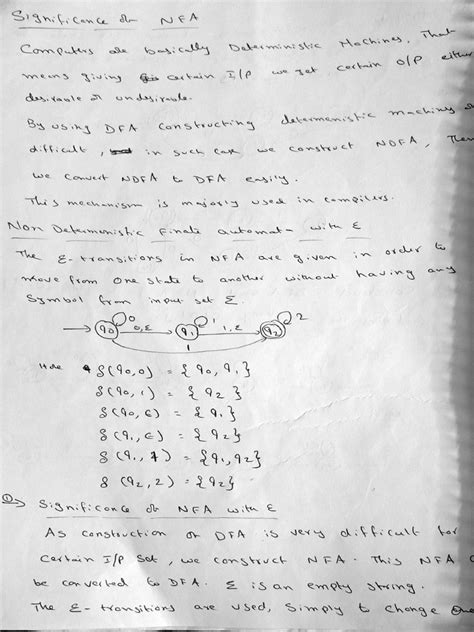 Significance of NFA
Computers are basically Deterministic Machines. That
means giving certain I/P we get certain O/P either
desirable or undesirable.
By using DFA constructing determenistic machines
difficult, in such case we construct NDFA, Then
we convert NDFA to DFA easily.
This mechanism is majorly used in compilers.
Non Determenistic Finate automat- with ε
The ε-transitions in NFA are given in order to
move from one state to another without having any
symbol from input set Σ.
0 1 2
q0 0,ε q1 1,ε q2
1
Here δ(q0,0) = {q0,q1}
δ(q0,1) = {q2}
δ(q0,ε) = {q1}
δ(q1,ε) = {q2}
δ(q1,1) = {q1,q2}
δ(q2,2) = {q2}
① Significance of NFA with ε
As construction of DFA is very difficult for
certain I/P set, we construct NFA. This NFA
be converted to DFA. ε is an empty string.
The ε-transitions are used, simply to change